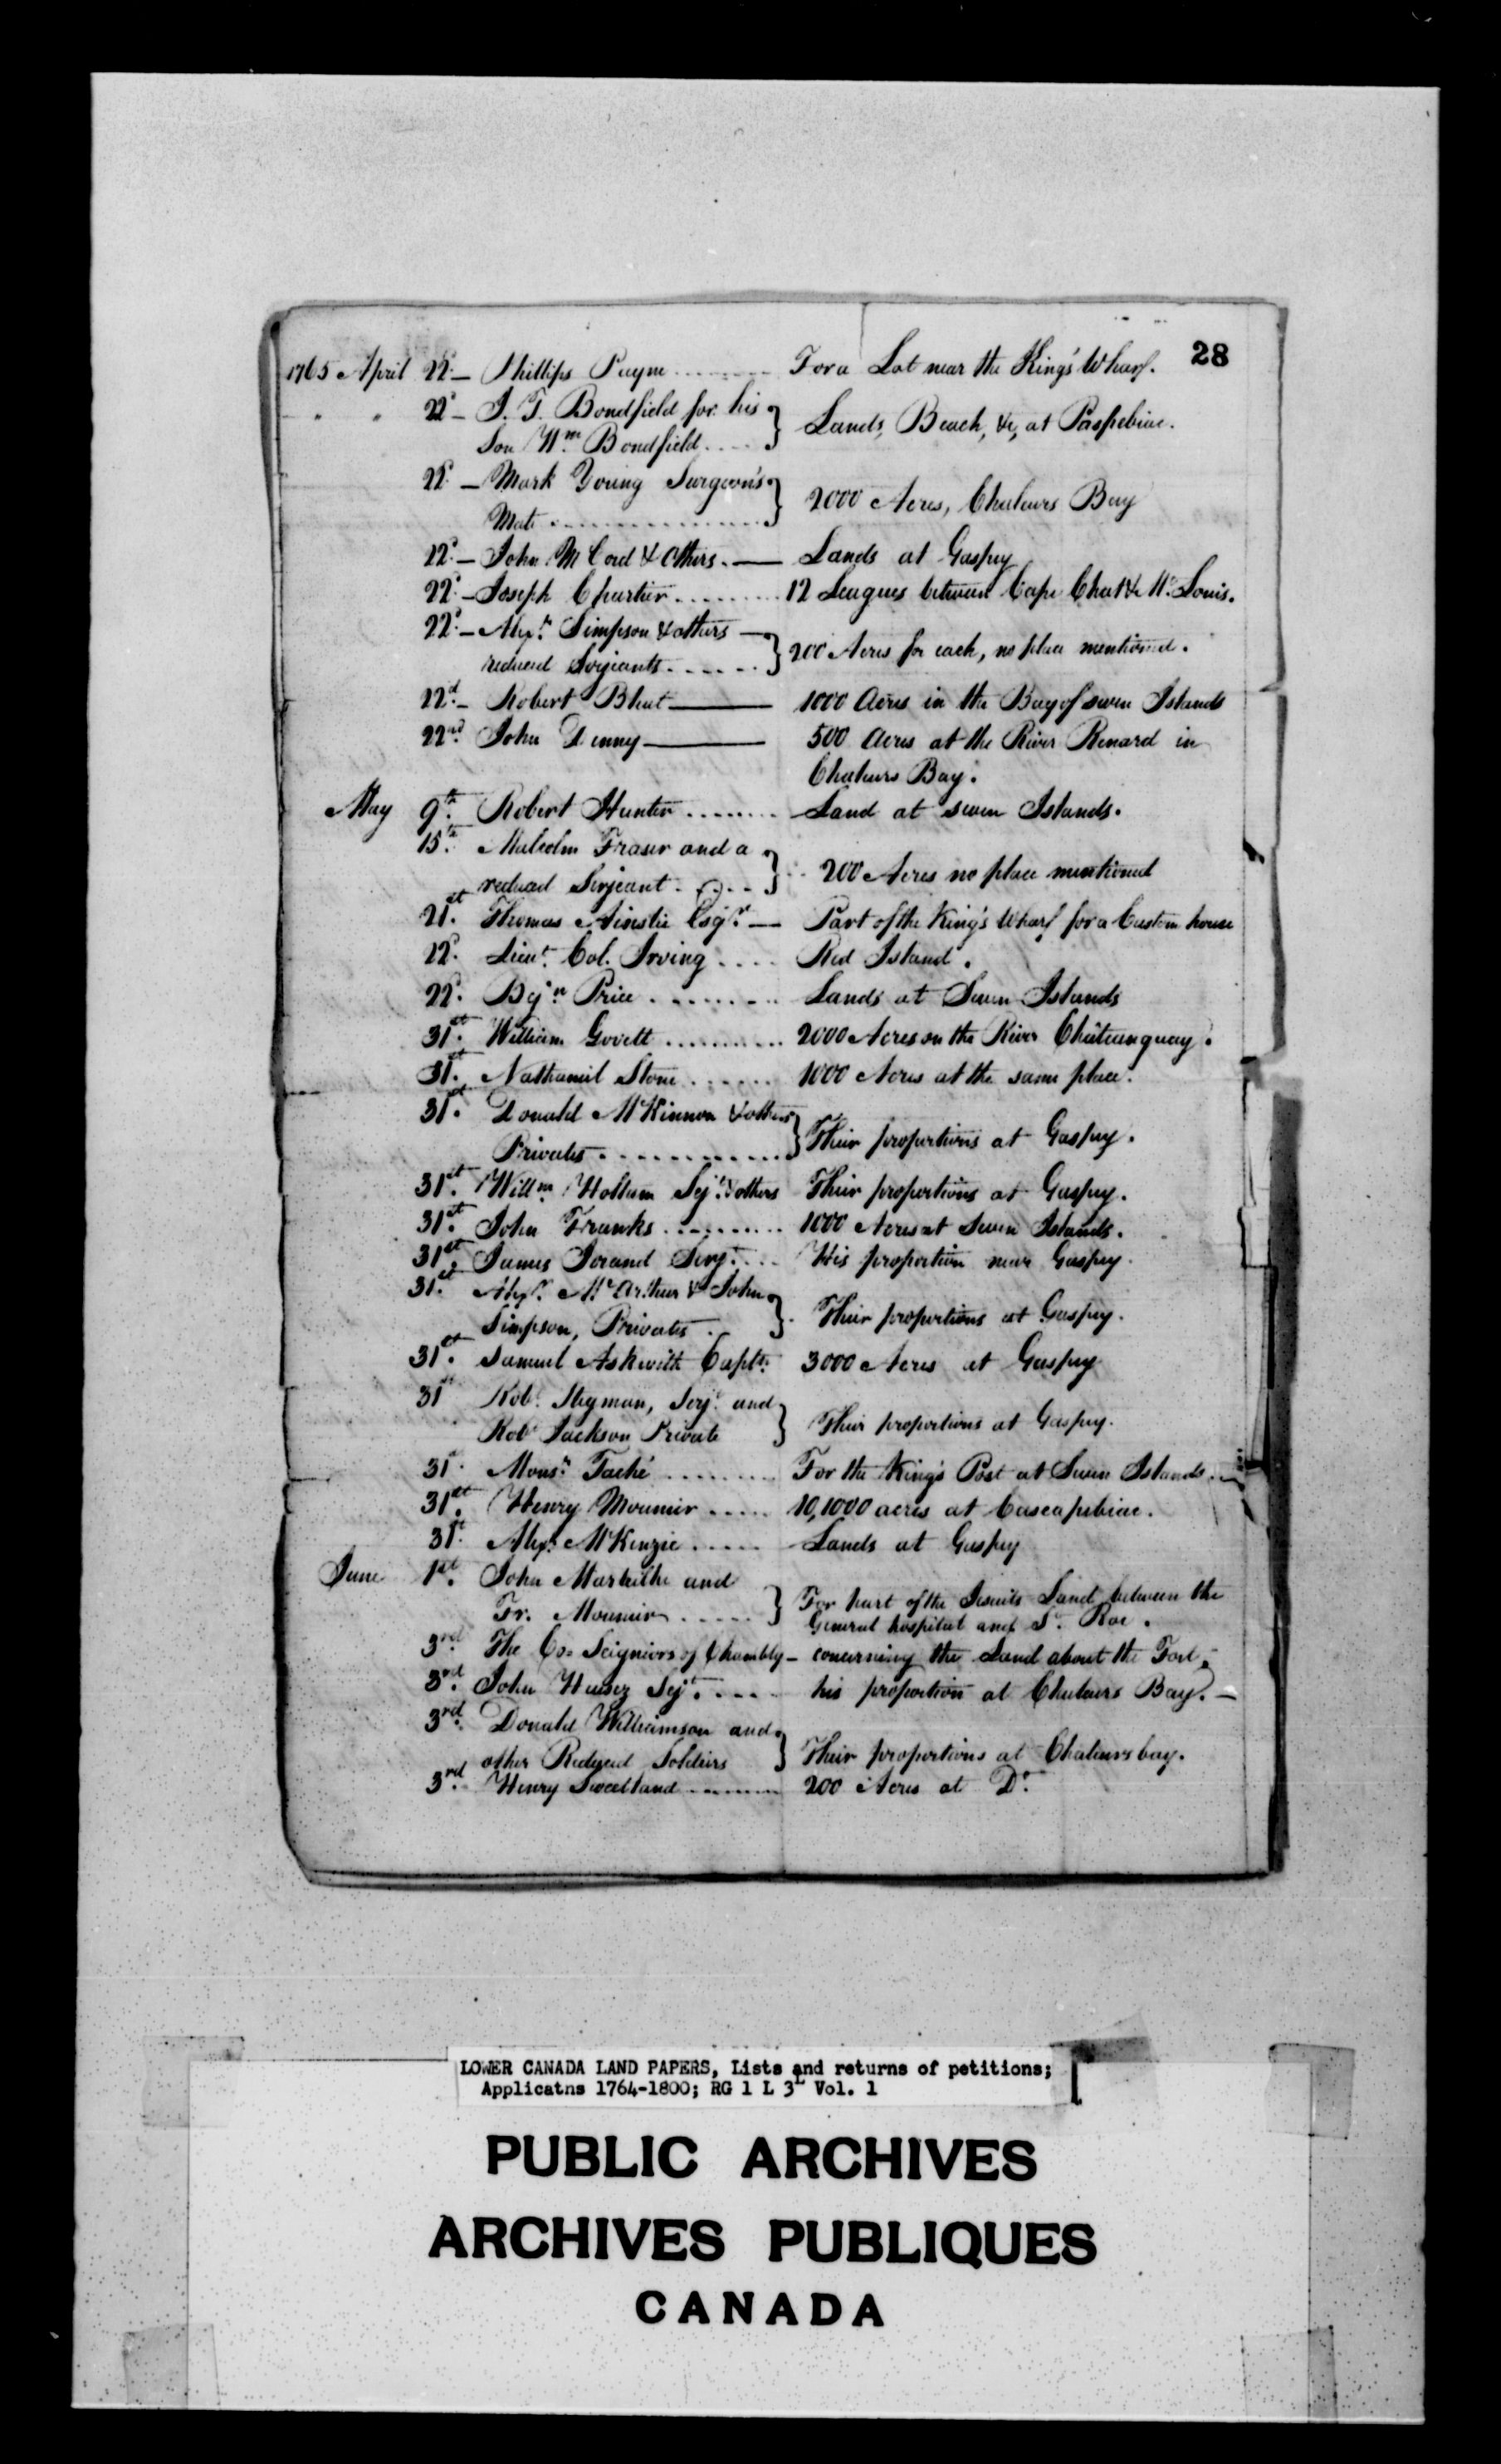 28
1765 April 22d — Phillips Payne ........ For a Lot near the King's Wharf.
" " 22d — J. T. Bondfield for his } Lands, Beach, &c, at Paspebiac.
Son Wm. Bondfield ....
22d — Mark Young Surgeon's } 2000 Acres, Chaleurs Bay
Mate ...............
22d — John McCord & others — Lands at Gaspey
22d — Joseph Chartier ........ 12 Leagues between Cape Chat & Mt. Louis.
22d — Alexr. Simpson & others — } 200 Acres for each, no place mentioned.
reduced Serjeants ......
22d — Robert — 1000 Acres in the Bay of seven Islands
22nd John Denny — 500 Acres at the River Renard in
Chaleurs Bay.
May 9th. Robert Hunter ........ Land at seven Islands.
15th. Malcolm Fraser and a } 200 Acres no place mentioned
reduced Serjeant ....
21st. Thomas Ainslie Esqr. — Part of the King's Wharf for a Custom house
22d. Lieut. Col. Irving .... Red Island.
22d. Bejn. Price ........ Lands at Seven Islands
31st. William Govett .......... 2000 Acres on the River Châteauguay.
31st. Nathaniel Stone ...... 1000 Acres at the same place.
31st. Donald McKinnon & others } Their proportions at Gaspey.
Privates ............
31st. Willm. Hollam Sejt. & others Their proportions at Gaspey.
31st. John Franks ......... 1000 Acres at Seven Islands.
31st. James Serjt. ... His proportion near Gaspey.
31st. Alexr. McArthur & John } Their proportions at Gaspey.
Simpson, Privates .
31st. Samuel Askwith Captn. 3000 Acres at Gaspey
31st Robt. Serjt. and } Their proportions at Gaspey.
Robt. Jackson Private
31st. Monsr. Taché ........ For the King's Post at Seven Islands.
31st. Henry Mounier ..... 10,1000 acres at Cascapebiac.
31st. Alexr. McKenzie ..... Lands at Gaspey
June 1st. John Marteilhe and } For part of the Jesuits Land between the
Fr. Mounier ..... General hospital and St. Roc.
3rd. The Co-Seigniors of Chambly — concerning the Land about the Fort.
3rd. John Sejt. .... his proportion at Chaleurs Bay. —
3rd. Donald Williamson and } Their proportions at Chaleurs bay.
other Reduced Soldiers
3rd. Henry Sweetland ........ 200 Acres at Do.
LOWER CANADA LAND PAPERS, Lists and returns of petitions;
Applicatns 1764-1800; RG 1 L 3L Vol. 1
PUBLIC ARCHIVES
ARCHIVES PUBLIQUES
CANADA